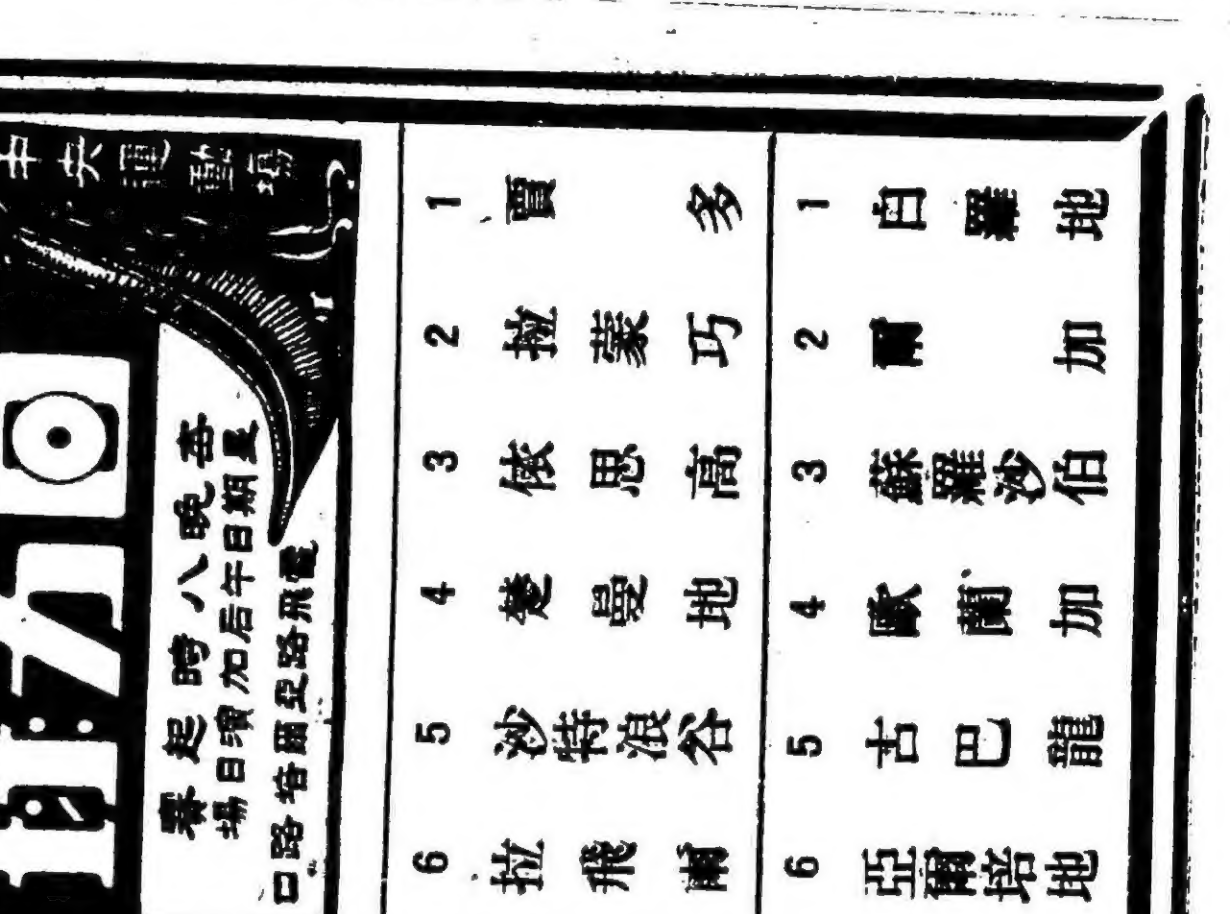 中央運動場
每晚八時起賽
星期日午后加演日場
霞飛路亞爾培路口
1 賈多
2 拉蒙巧
3 依思高
4 曼地
5 沙特浪谷
6 拉飛爾
1 白羅地
2 爾加
3 蘇羅沙伯
4 蘭加
5 古巴龍
6 亞爾培地